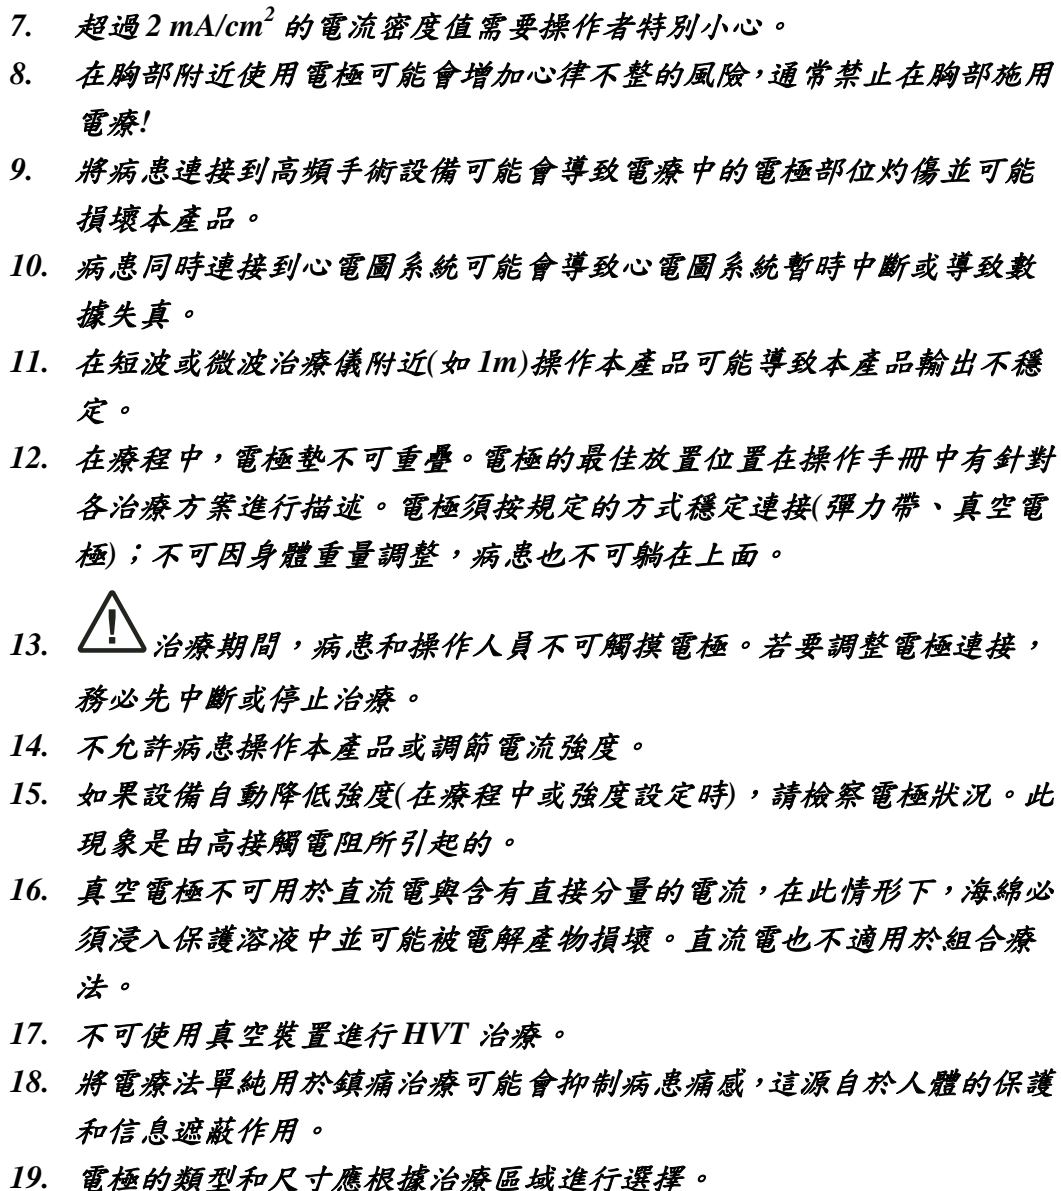 7. 超過 2 mA/cm² 的電流密度值需要操作者特別小心。
8. 在胸部附近使用電極可能會增加心律不整的風險，通常禁止在胸部施用
電療!
9. 將病患連接到高頻手術設備可能會導致電療中的電極部位灼傷並可能
損壞本產品。
10. 病患同時連接到心電圖系統可能會導致心電圖系統暫時中斷或導致數
據失真。
11. 在短波或微波治療儀附近(如 1m)操作本產品可能導致本產品輸出不穩
定。
12. 在療程中，電極墊不可重疊。電極的最佳放置位置在操作手冊中有針對
各治療方案進行描述。電極須按規定的方式穩定連接(彈力帶、真空電
極)；不可因身體重量調整，病患也不可躺在上面。
13. 治療期間，病患和操作人員不可觸摸電極。若要調整電極連接，
務必先中斷或停止治療。
14. 不允許病患操作本產品或調節電流強度。
15. 如果設備自動降低強度(在療程中或強度設定時)，請檢察電極狀況。此
現象是由高接觸電阻所引起的。
16. 真空電極不可用於直流電與含有直接分量的電流，在此情形下，海綿必
須浸入保護溶液中並可能被電解產物損壞。直流電也不適用於組合療
法。
17. 不可使用真空裝置進行 HVT 治療。
18. 將電療法單純用於鎮痛治療可能會抑制病患痛感，這源自於人體的保護
和信息遮蔽作用。
19. 電極的類型和尺寸應根據治療區域進行選擇。